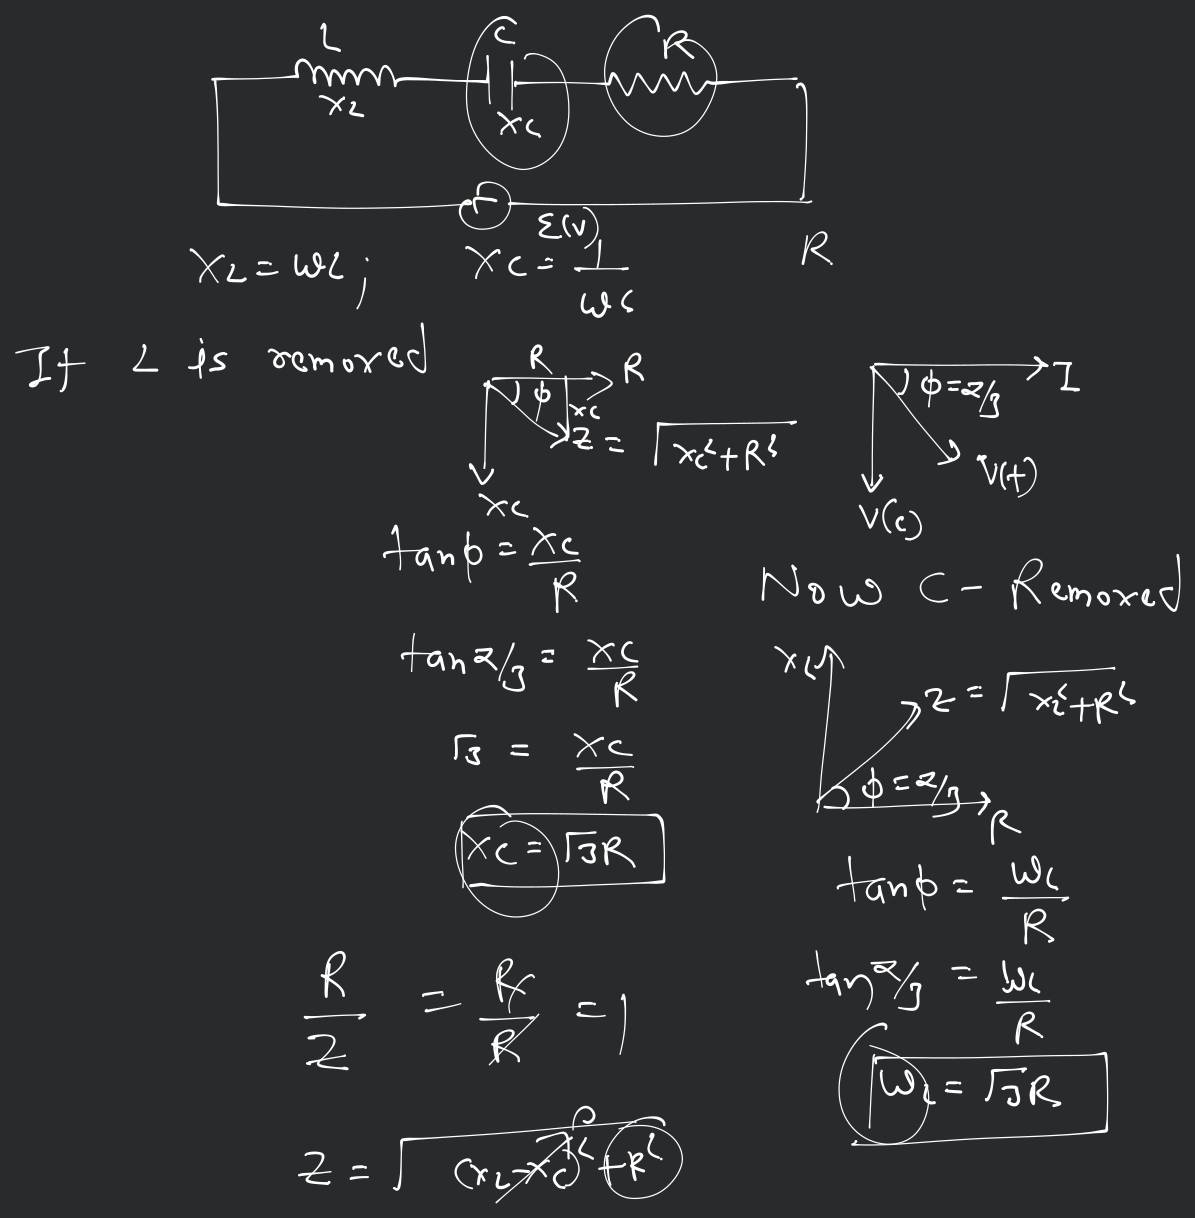 L
C
R
X_L
X_C
ε(v)
X_L = ωL ; X_C = 1/ωC
R
If L is removed
R
R
φ
X_C
Z = √(X_C² + R²)
X_C
I
φ = π/3
V(t)
V(c)
tanφ = X_C/R
tan π/3 = X_C/R
√3 = X_C/R
X_C = √3R
Now C - Removed
X_L
Z = √(X_L² + R²)
φ = π/3
R
tanφ = ωL/R
tan π/3 = ωL/R
ωL = √3R
R/Z = R/R = 1
Z = √((X_L - X_C)² + R²)
0